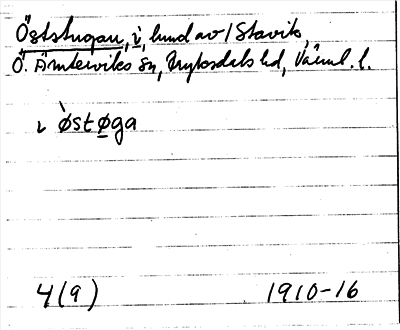 Öststugan, i, hund av /Stavik,
Ö. Ämterviks sn, Fryksdals hd, Värml. l.
i ̀østøga
4(9) 1910-16